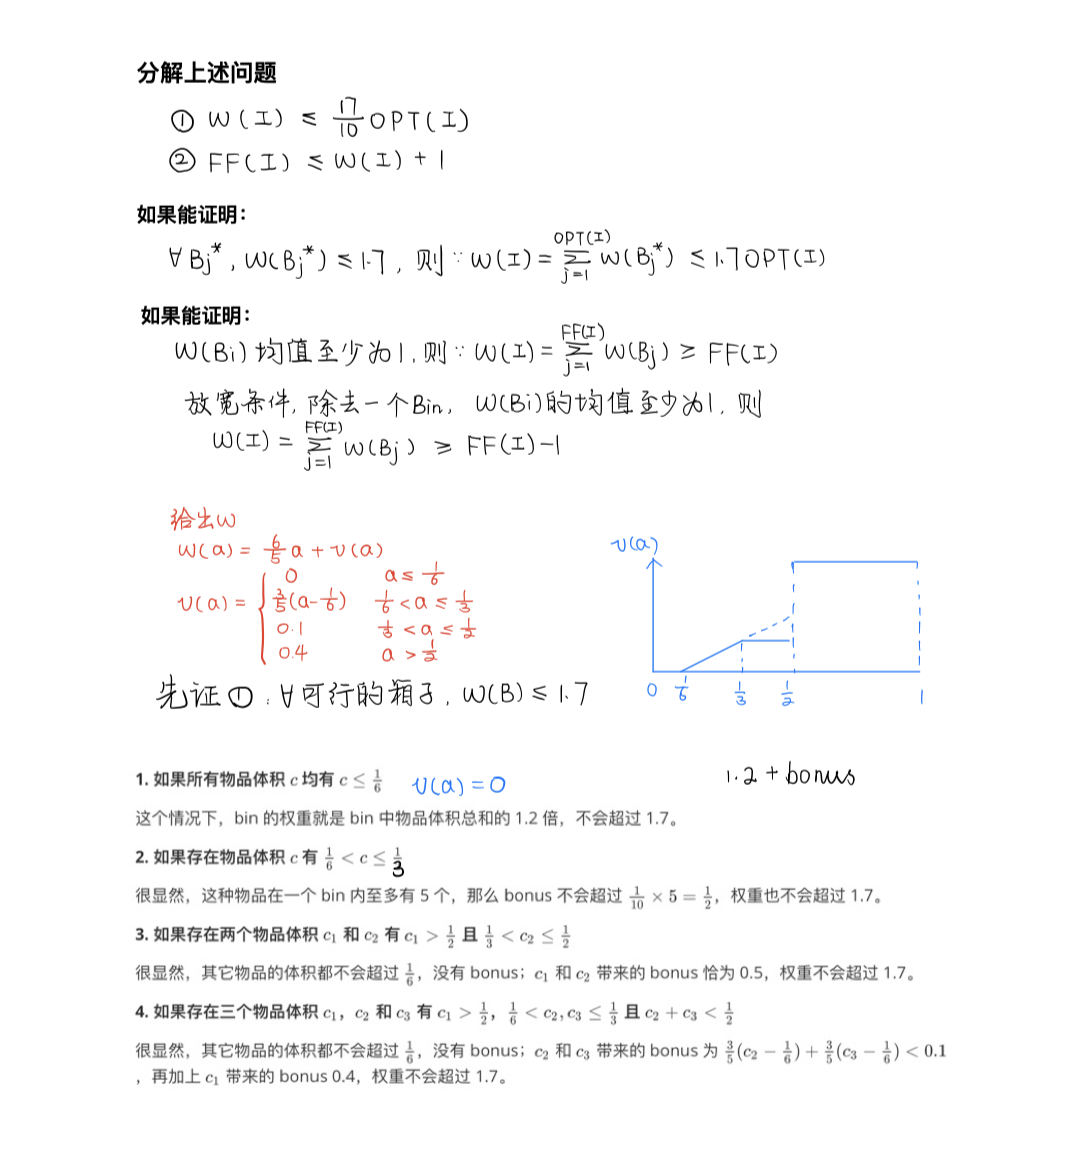 分解上述问题
① W(I) ≤ 17/10 OPT(I)
② FF(I) ≤ W(I) + 1
如果能证明:
∀ Bj*, W(Bj*) ≤ 1.7, 则 ∵ W(I) = Σ_{j=1}^{OPT(I)} W(Bj*) ≤ 1.7 OPT(I)
如果能证明:
W(Bi) 均值至少为1, 则 ∵ W(I) = Σ_{j=1}^{FF(I)} W(Bj) ≥ FF(I)
放宽条件, 除去一个Bin, W(Bi)的均值至少为1, 则
W(I) = Σ_{j=1}^{FF(I)} W(Bj) ≥ FF(I)-1
给出w
W(a) = 6/5 a + v(a)
v(a) = { 0 a ≤ 1/6
3/5(a-1/6) 1/6 < a ≤ 1/3
0.1 1/3 < a ≤ 1/2
0.4 a > 1/2
v(a)
0 1/6 1/3 1/2 1
先证①: ∀可行的箱子, W(B) ≤ 1.7
1. 如果所有物品体积 c 均有 c ≤ 1/6 v(a) = 0
1.2 + bonus
这个情况下，bin 的权重就是 bin 中物品体积总和的 1.2 倍，不会超过 1.7。
2. 如果存在物品体积 c 有 1/6 < c ≤ 1/3
很显然，这种物品在一个 bin 内至多有 5 个，那么 bonus 不会超过 1/10 × 5 = 1/2，权重也不会超过 1.7。
3. 如果存在两个物品体积 c₁ 和 c₂ 有 c₁ > 1/2 且 1/3 < c₂ ≤ 1/2
很显然，其它物品的体积都不会超过 1/6，没有 bonus；c₁ 和 c₂ 带来的 bonus 恰为 0.5，权重不会超过 1.7。
4. 如果存在三个物品体积 c₁，c₂ 和 c₃ 有 c₁ > 1/2，1/6 < c₂, c₃ ≤ 1/3 且 c₂ + c₃ < 1/2
很显然，其它物品的体积都不会超过 1/6，没有 bonus；c₂ 和 c₃ 带来的 bonus 为 3/5(c₂ − 1/6) + 3/5(c₃ − 1/6) < 0.1
，再加上 c₁ 带来的 bonus 0.4，权重不会超过 1.7。